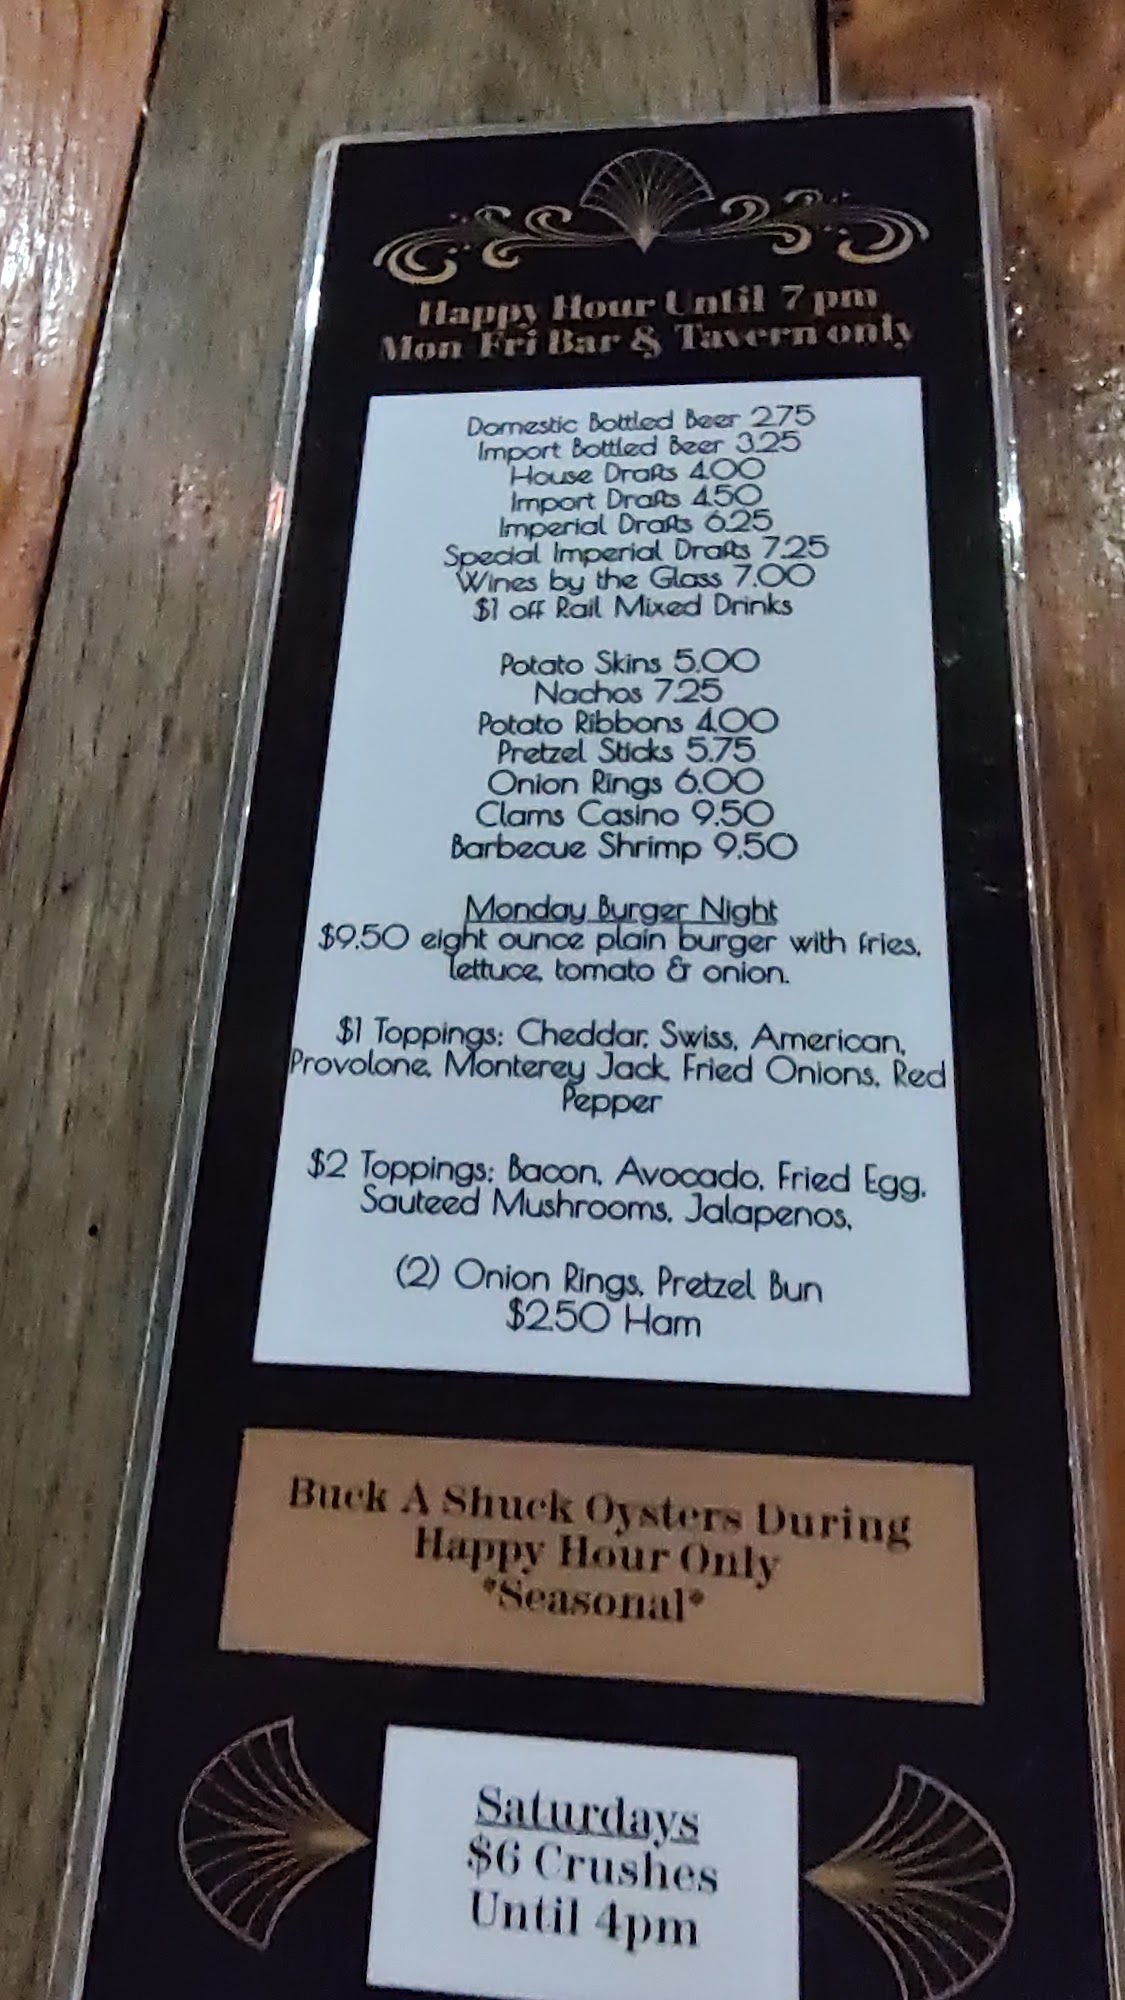 Happy Hour Until 7 pm
Mon Fri Bar & Tavern only
Domestic Bottled Beer 2.75
Import Bottled Beer 3.25
House Drafts 4.00
Import Drafts 4.50
Imperial Drafts 6.25
Special Imperial Drafts 7.25
Wines by the Glass 7.00
$1 off Rail Mixed Drinks
Potato Skins 5.00
Nachos 7.25
Potato Ribbons 4.00
Pretzel Sticks 5.75
Onion Rings 6.00
Clams Casino 9.50
Barbecue Shrimp 9.50
Monday Burger Night
$9.50 eight ounce plain burger with fries,
lettuce, tomato & onion.
$1 Toppings: Cheddar, Swiss, American,
Provolone, Monterey Jack, Fried Onions, Red
Pepper
$2 Toppings: Bacon, Avocado, Fried Egg,
Sauteed Mushrooms, Jalapenos,
(2) Onion Rings, Pretzel Bun
$2.50 Ham
Buck A Shuck Oysters During
Happy Hour Only
*Seasonal*
Saturdays
$6 Crushes
Until 4pm